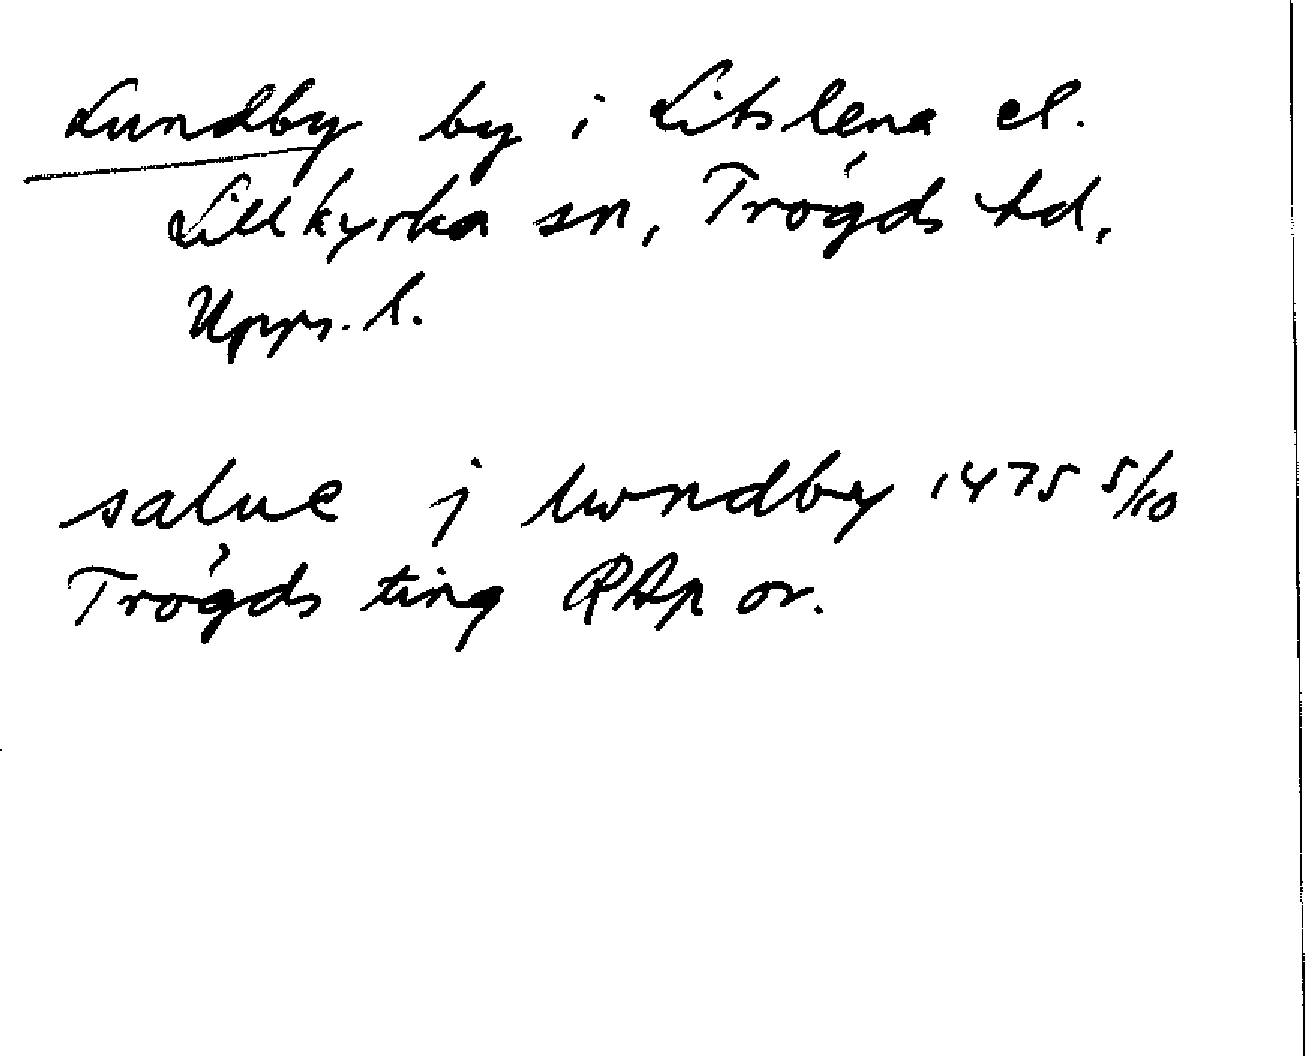 Lundby by i Litslena el.
Lillkyrka sn, Trögds hd,
Upps. l.
salue j lwndby 1475 5/10
Trögds ting RAp or.